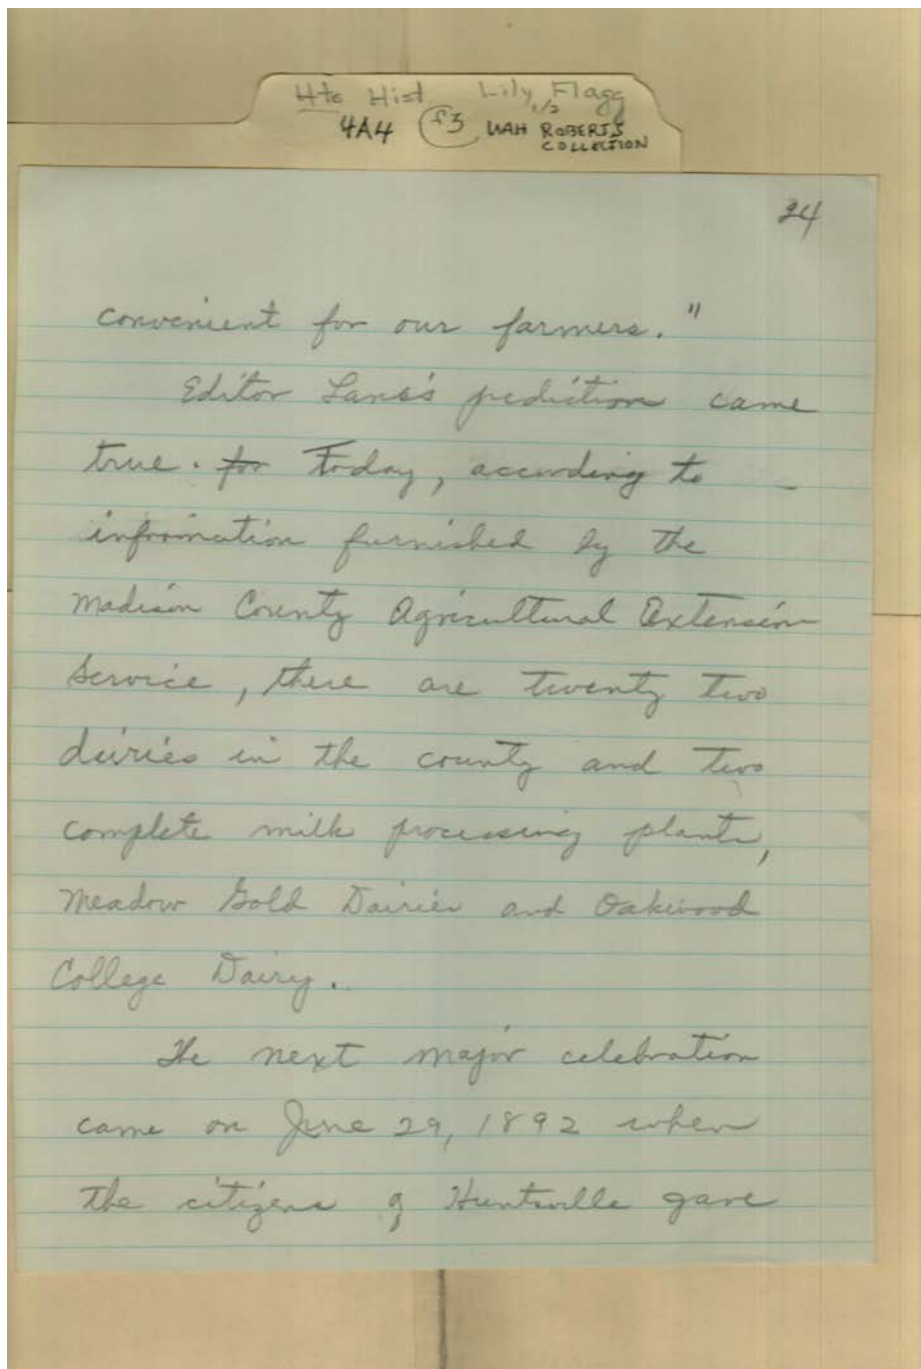 Hts Hist. Lily Flagg
1/2
4A4 f3 UAH ROBERTS
COLLECTION
24
convenient for our farmers."
Editor Lane's prediction came
true. for Today, according to
information furnished by the
Madison County Agricultural Extension
Service, there are twenty two
dairies in the county and two
complete milk processing plants,
Meadow Gold Dairies and Oakwood
College Dairy.
The next major celebration
came on June 29, 1892 when
the citizens of Huntsville gave